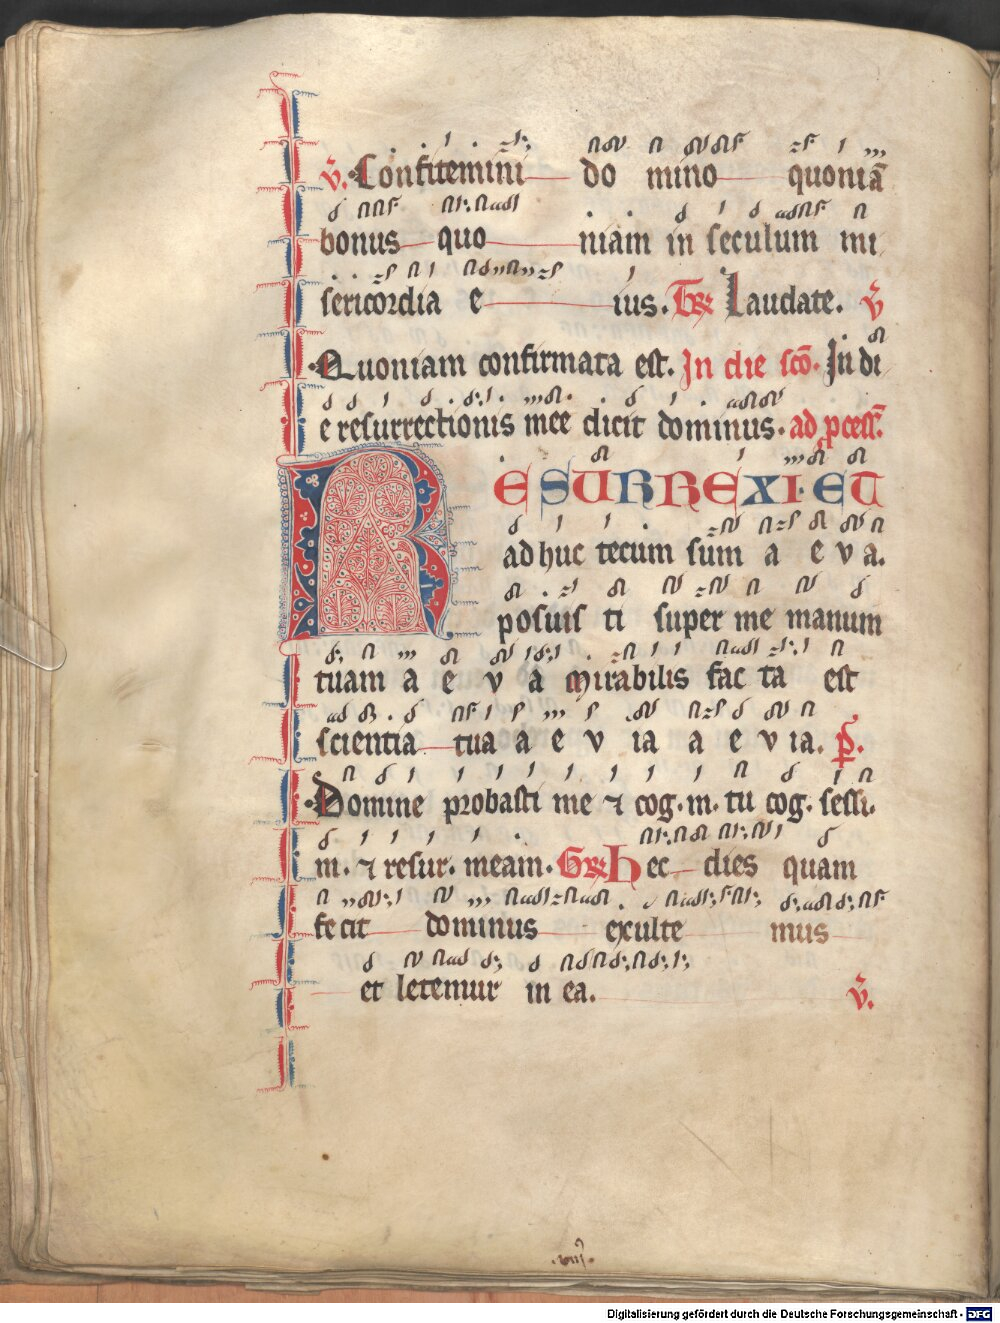 v̄. Confitemini do mino quoniā
bonus quo niam in seculum mi
sericordia e ius. Gr̄ Laudate. v̄
Quoniam confirmata est. In die scō. In di
e resurrectionis mee dicit dominus. ad ꝓcess.
RESURREXI. ET
adhuc tecum sum a e v a.
posuis ti super me manum
tuam a e v a mirabilis fac ta est
scientia tua a e v ia a e v ia. p̄.
Domine probasti me ⁊ cog. m. tu cog. sessi.
m. ⁊ resur. meam. Gr̄ Hec dies quam
fecit dominus exulte mus
et letemur in ea. v̄.
.viij.
Digitalisierung gefördert durch die Deutsche Forschungsgemeinschaft - DFG